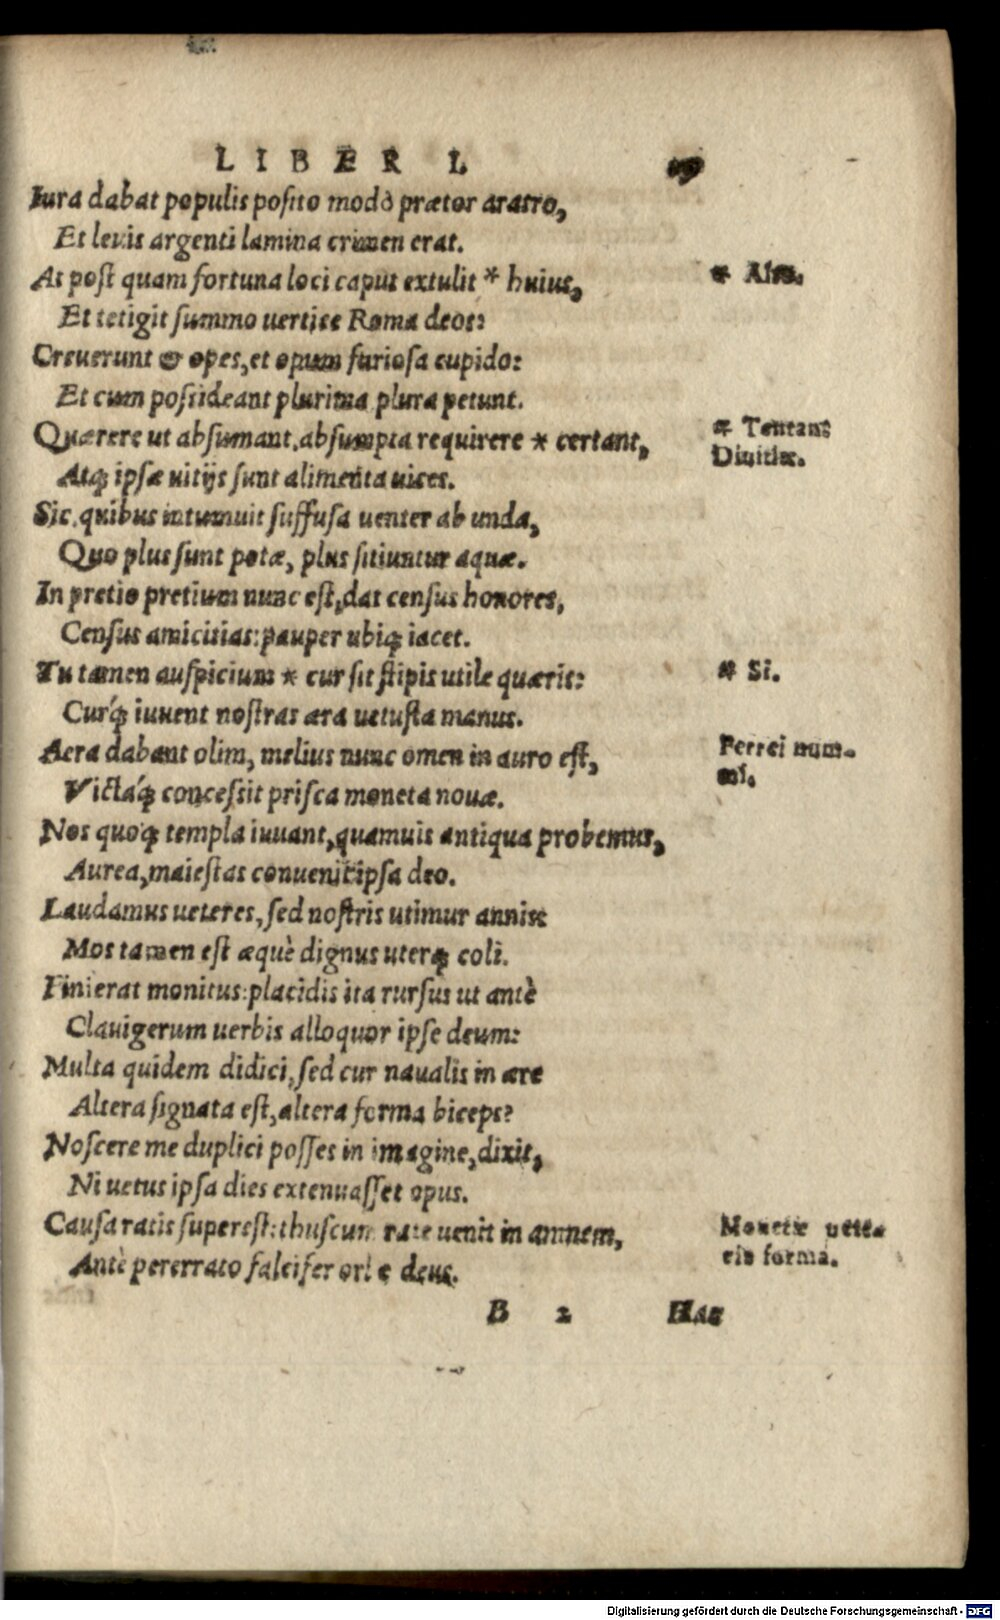 LIBER I. 19
Iura dabat populis posito modò prætor aratro,
Et leuis argenti lamina crimen erat.
At post quam fortuna loci caput extulit * huius, * Alta.
Et tetigit summo uertice Roma deos:
Creuerunt & opes, et opum furiosa cupido:
Et cum possideant plurima plura petunt.
Quærere ut absumant, absumpta requirere * certant, * Tentant
Diuitiæ.
Atq; ipsæ uitijs sunt alimenta uices.
Sic, quibus intumuit suffusa uenter ab unda,
Quo plus sunt potæ, plus sitiuntur aquæ.
In pretio pretium nunc est, dat census honores,
Census amicitias: pauper ubiq; iacet.
Tu tamen auspicium * cur sit stipis utile quæris: * Si.
Curq́; iuuent nostras æra uetusta manus.
Aera dabant olim, melius nunc omen in auro est, Ferrei num-
mi.
Victaq́; concessit prisca moneta nouæ.
Nos quoq; templa iuuant, quamuis antiqua probemus,
Aurea, maiestas conuenit ipsa deo.
Laudamus ueteres, sed nostris utimur annis:
Mos tamen est æquè dignus uterq; coli.
Finierat monitus: placidis ita rursus ut antè
Clauigerum uerbis alloquor ipse deum:
Multa quidem didici, sed cur naualis in ære
Altera signata est, altera forma biceps?
Noscere me duplici posses in imagine, dixit,
Ni uetus ipsa dies extenuasset opus.
Causa ratis superest: thuscum rate uenit in amnem, Monetæ uete-
ris forma.
Antè pererrato falcifer orbe deus.
B 2 Hac
Digitalisierung gefördert durch die Deutsche Forschungsgemeinschaft - DFG